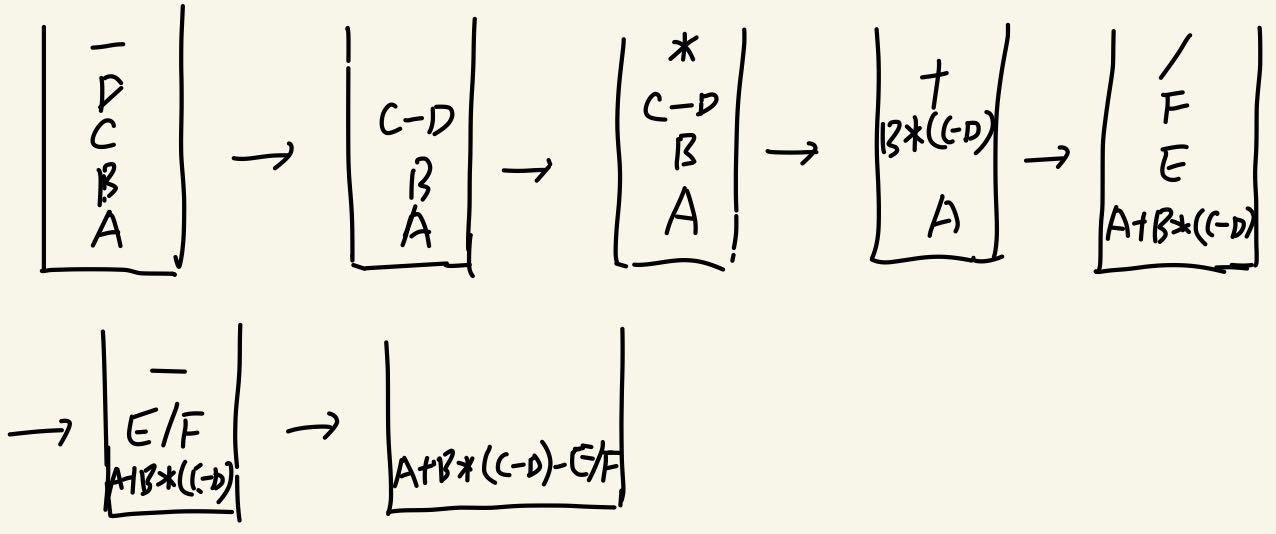 -
D
C
B
A
→
C-D
B
A
→
*
C-D
B
A
→
+
B*(C-D)
A
→
/
F
E
A+B*(C-D)
→
-
E/F
A+B*(C-D)
→
A+B*(C-D)-E/F